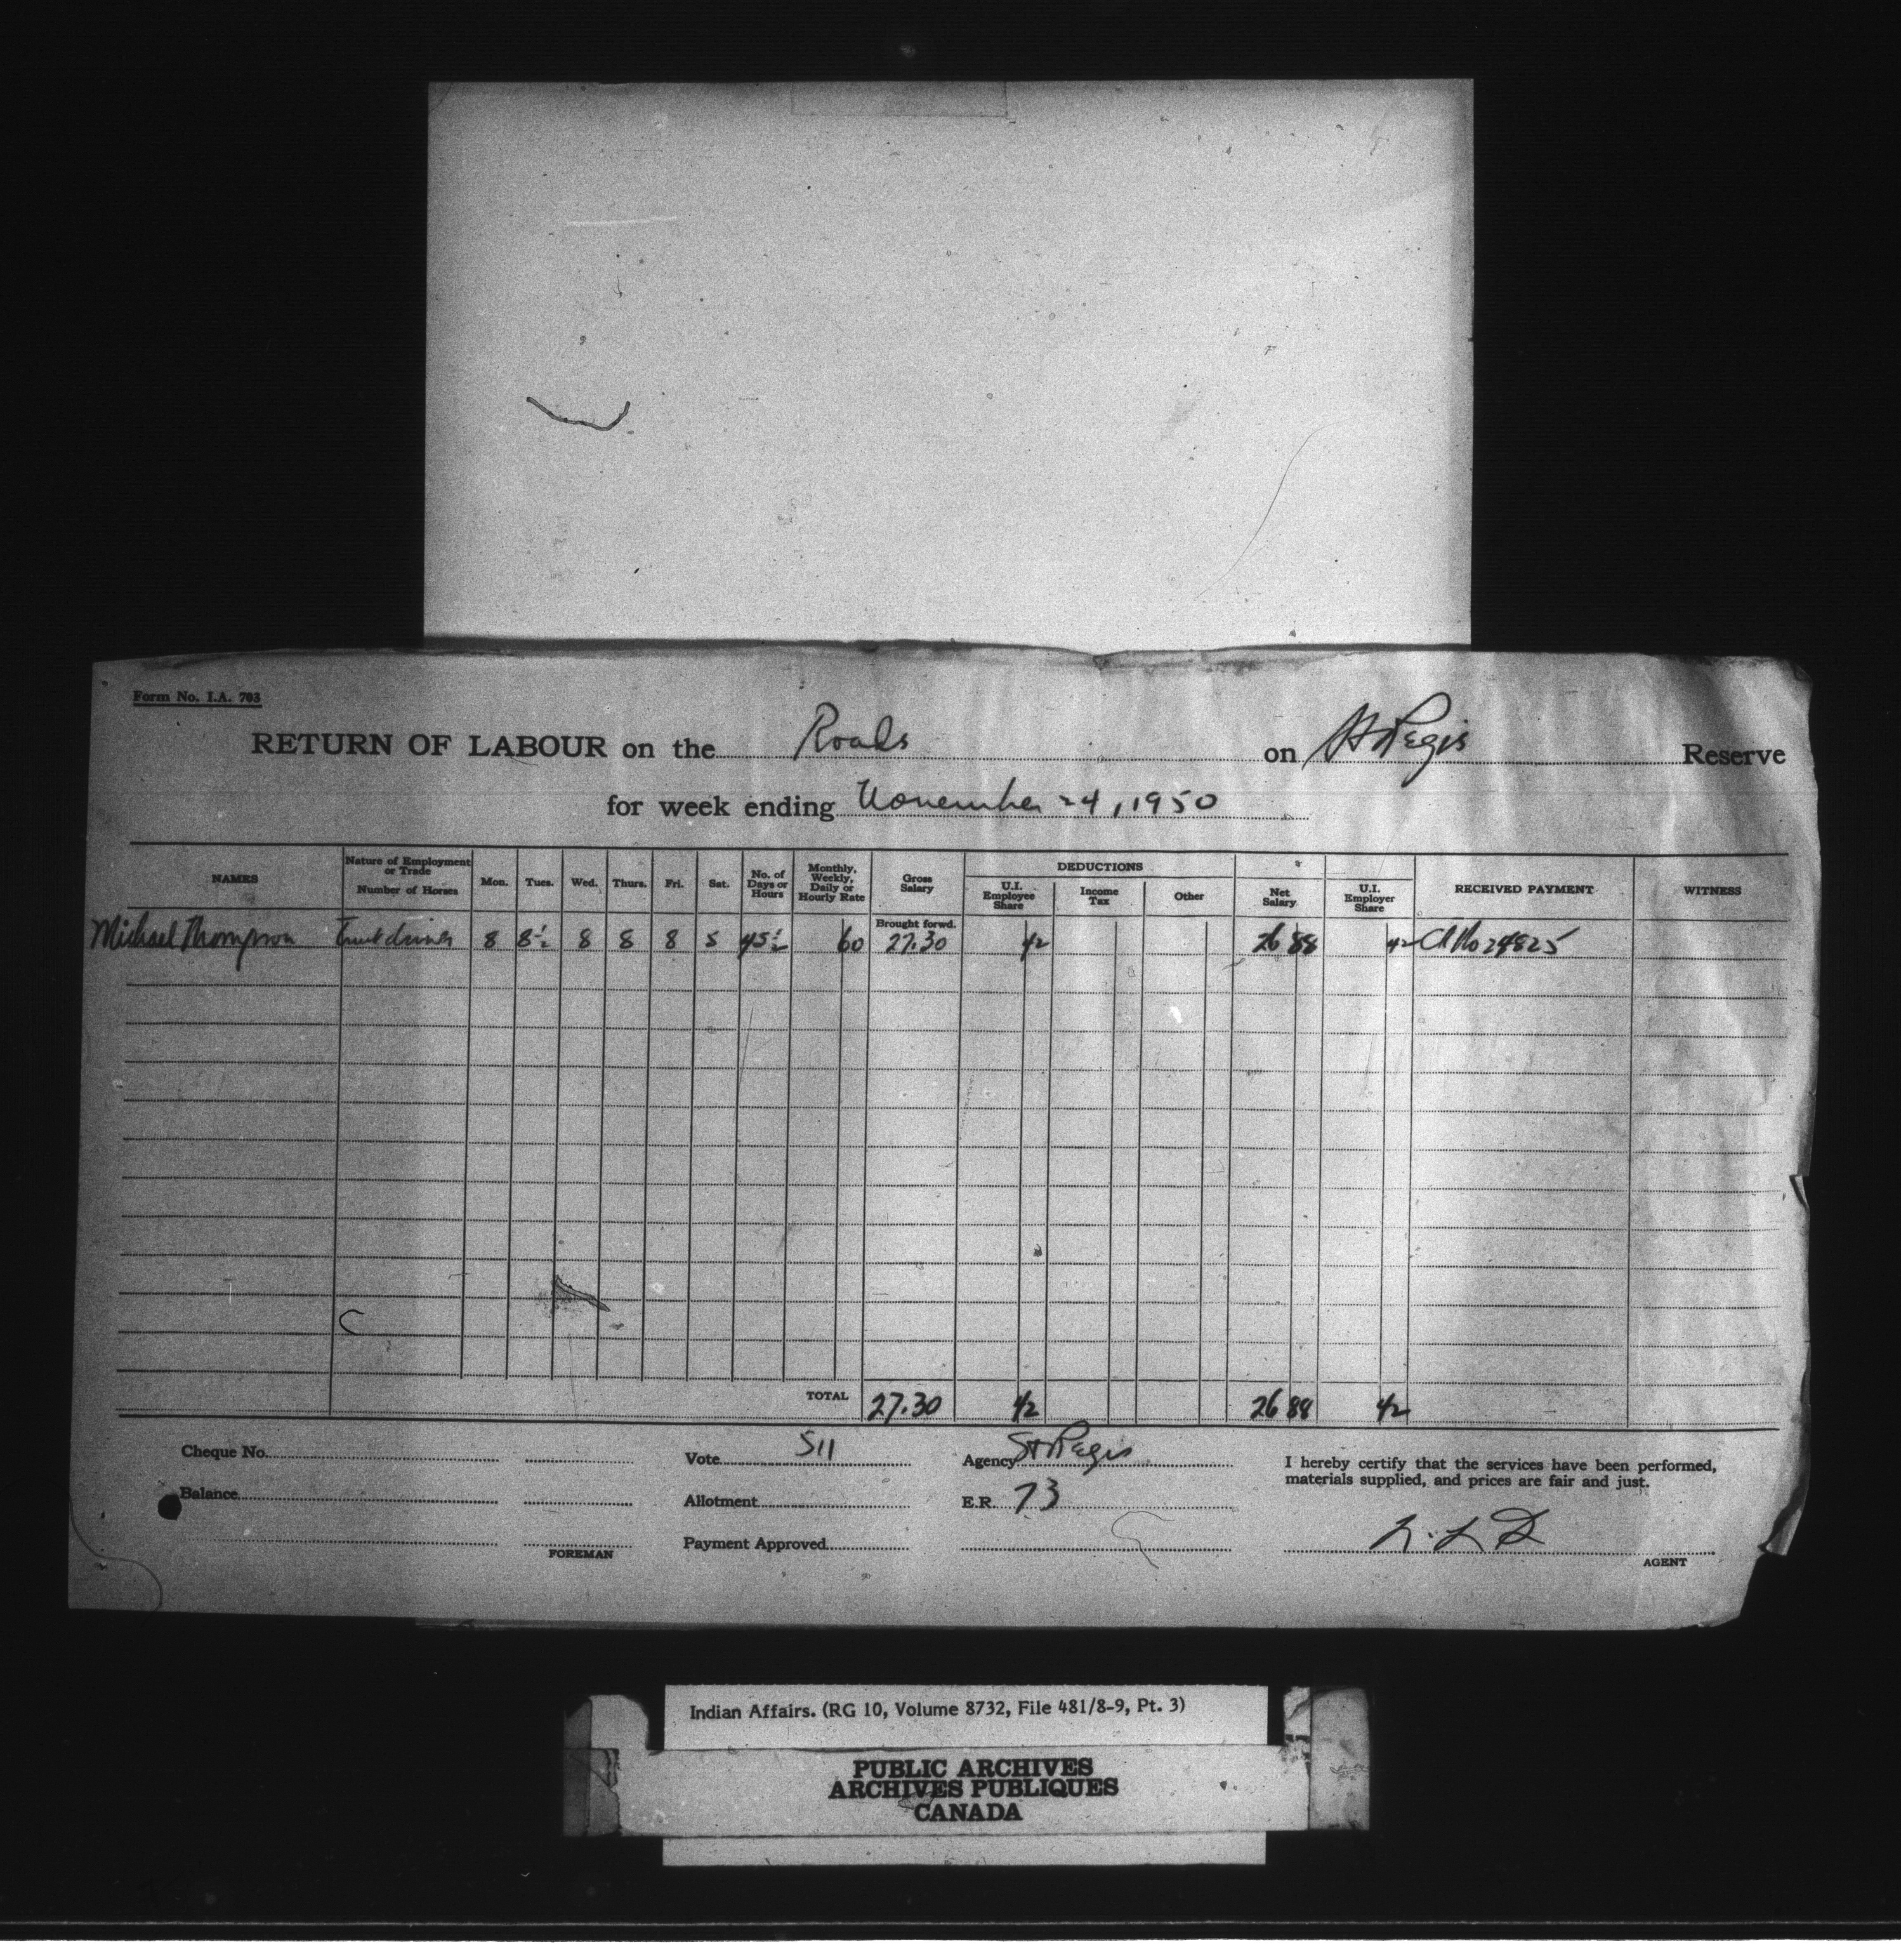 Form No. I.A. 703
RETURN OF LABOUR on the Roads on St Regis Reserve
for week ending November 24, 1950
NAMES
Nature of Employment or Trade
Number of Horses
Mon. Tues. Wed. Thurs. Fri. Sat.
No. of Days or Hours
Monthly, Weekly, Daily or Hourly Rate
Gross Salary
DEDUCTIONS
U.I. Employee Share
Income Tax
Other
Net Salary
U.I. Employer Share
RECEIVED PAYMENT
WITNESS
Brought forwd.
Michael Thompson Truck driver 8 8½ 8 8 8 5 45½ 60 27.30 42 26 88 42 Ch No 24825
TOTAL 27.30 42 26 88 42
Cheque No. Vote 511 Agency St Regis
I hereby certify that the services have been performed,
materials supplied, and prices are fair and just.
Balance Allotment E.R. 73
FOREMAN
Payment Approved
AGENT
Indian Affairs. (RG 10, Volume 8732, File 481/8-9, Pt. 3)
PUBLIC ARCHIVES
ARCHIVES PUBLIQUES
CANADA